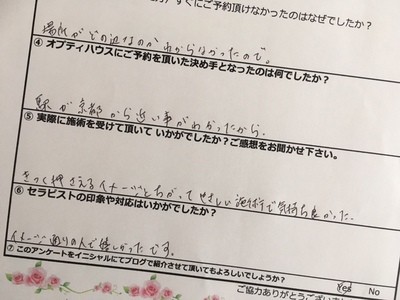 すぐにご予約頂けなかったのはなぜでしたか?
場所がどの辺なのかわからなかったので。
④ オプティハウスにご予約を頂いた決め手となったのは何でしたか?
駅が京都から近い事がわかったから。
⑤ 実際に施術を受けて頂いて いかがでしたか?ご感想をお聞かせ下さい。
きつく押さえるイメージとちがって やさしい施術で気持ち良かった。
⑥ セラピストの印象や対応はいかがでしたか?
イメージ通りの人で嬉しかったです。
⑦ このアンケートをイニシャルにてブログで紹介させて頂いてもよろしいでしょうか?
Yes No
ご協力ありがとうござい